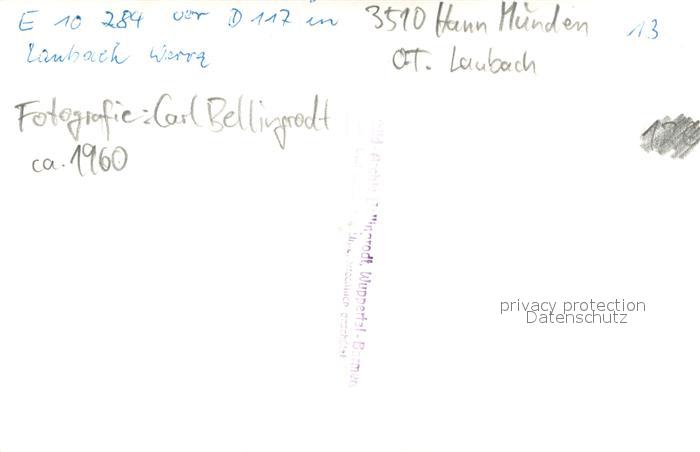 E 10 284 vor D 117 in
Laubach Werra
3510 Hann Münden
OT. Laubach
13
Fotografie: Carl Bellingrodt
ca. 1960
Bellingrodt, Wuppertal-Barmen
privacy protection
Datenschutz